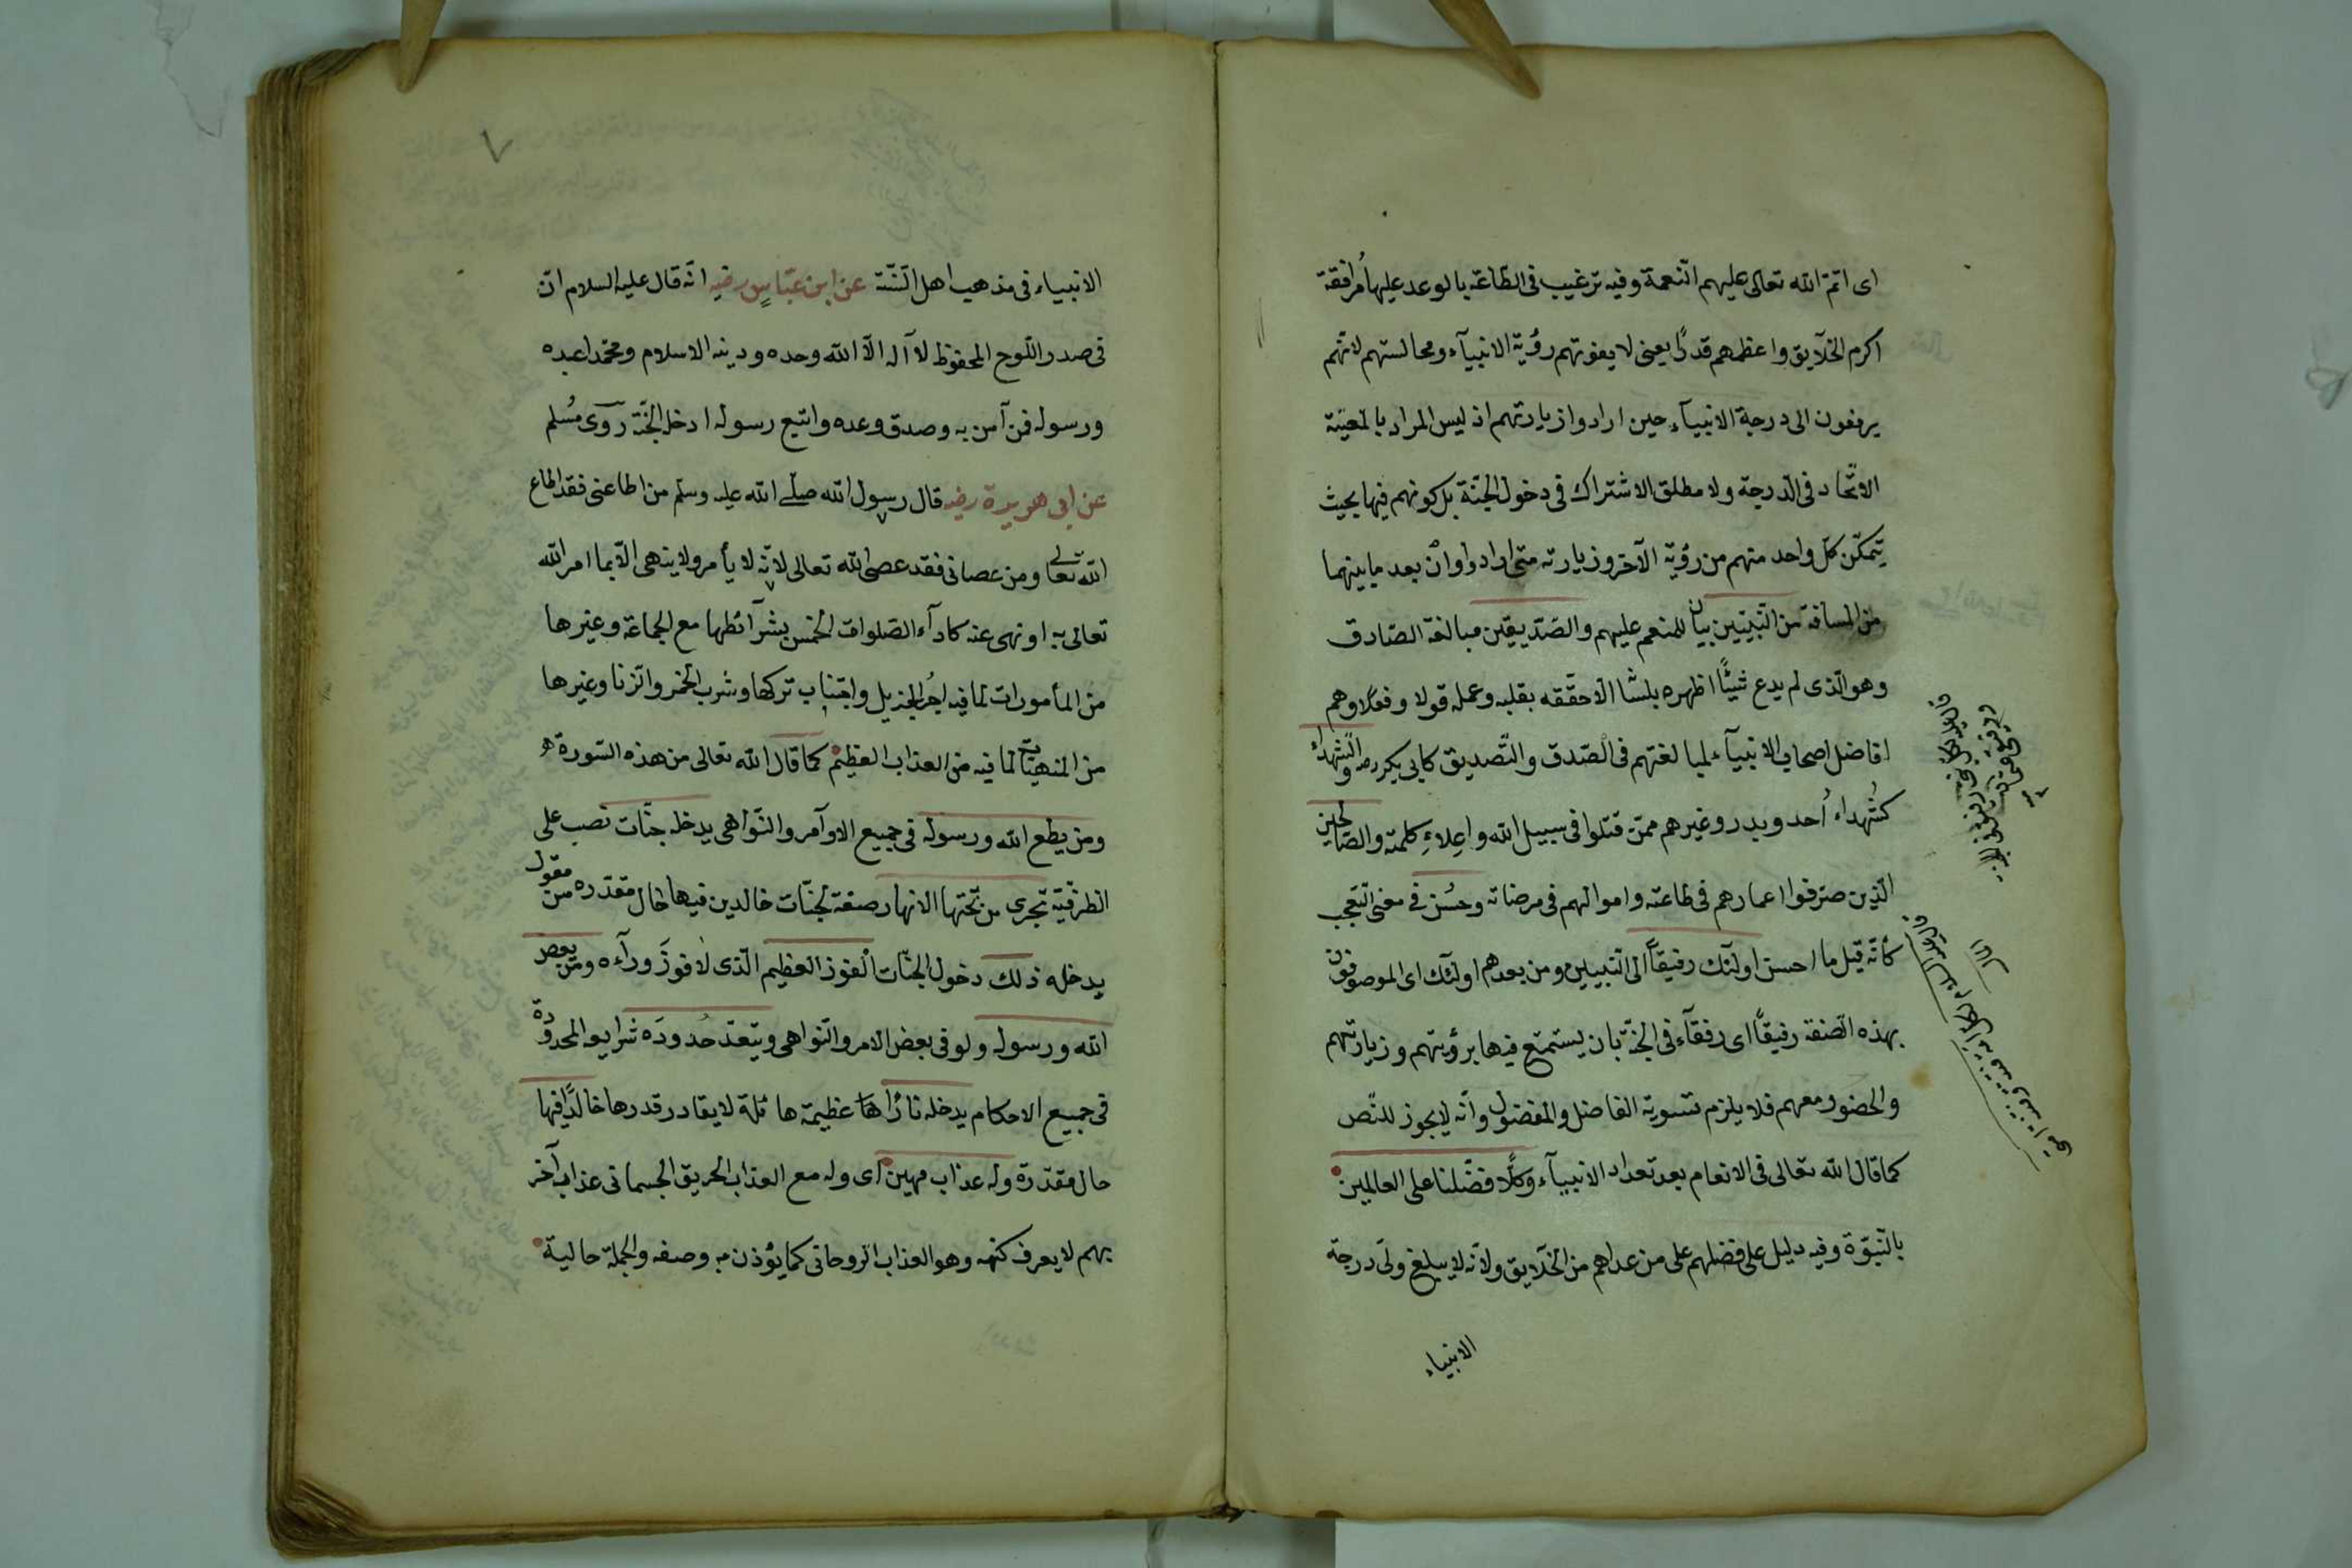 اى اتمّ الله تعالى عليهم النّعمة وفيه ترغيب فى الطّاعة بالوعد عليها مُرافقة
اكرم الخلآيق واعظمهم قدرًا يعنى لا يفوتهم رؤية الانبيآء ومجالستهم لانّهم
يرفعون الى درجة الانبيآء حين ارادوا زيارتهم اذ ليس المراد بالمعيّة
الاتّحاد فى الدّرجة ولا مطلق الاشتراك فى دخول الجنّة بل كونهم فيها بحيث
يتمكّن كلّ واحد منهم من رؤية الآخر وزيارته متى ارادوا وان بعد ما بينهما
من المسافة من النّبيّين بيان للمنعم عليهم والصّدّيقين مبالغة الصّادق
وهو الّذى لم يدع شيئًا اظهره بلسانه الّا حقّقه بقلبه وعمله قولا وفعلًا وهم
افاضل اصحاب الانبيآء لمبالغتهم فى الصّدق والتّصديق كابى بكر رضه والشّهدآء
كشُهداء اُحد وبدر وغيرهم ممّن قتلوا فى سبيل الله واِعلاءِ كلمته والصّالحين
الّذين صرّفوا اعمارهم فى طاعته واموالهم فى مرضاته وحسُن فى معنى التّعجّب
كأنّه قيل ما احسن اولئك رفيقاً الى النّبيين ومن بعدهم اولئك اى الموصوفون
بهذه الصّفة رفيقًا اى رفقآء فى الجنّة بان يستمتع فيها برؤيتهم وزيارتهم
والحضور معهم فلا يلزم تسوية الفاضل والمفضول وانّه لا يجوز للنّص
كما قال الله تعالى فى الانعام بعد تعداد الانبيآء وكلًّا فضّلنا على العالمين
بالنّبوّة وفيه دليل على فضلهم على من عداهم من الخلآيق ولانّه لا يبلغ ولىّ درجة
الانبياء
٧
الانبياء فى مذهب اهل السّنّة عن ابن عبّاسٍ رضيه انّه قال عليه السلام انّ
فى صدر اللّوح المحفوظ لا آله الّا الله وحده ودينه الاسلام ومحمّد عبده
ورسوله فمن آمن به وصدق وعده واتبع رسوله ادخله الجنّة روى مُسلم
عن ابى هريرة رضيه قال رسول الله صلّى الله عليه وسلّم من اطاعنى فقد اطاع
الله تعالى ومن عصانى فقد عصى الله تعالى لانّه لا يأمر ولا ينهى الّا بما امر الله
تعالى به او نهى عنه كادآء الصّلوات الخمس بشرآئطها مع الجماعة وغيرها
من المأمورات لما فيه اجُر الجزيل واجتناب تركها وشرب الخمر والزّنا وغيرها
من المنهيّات لما فيه من العذاب العظيم كما قال الله تعالى من هذه السّورة
ومن يطع الله ورسوله فى جميع الاوآمر والنّواهى يدخله جنّات نصب على
الظرفيّة تجرى من تحتها الانهار صفة لجنّات خالدين فيها حال مقدّره من مقول
يدخله ذلك دخول الجنّات الفوز العظيم الّذى لا فوزَ ورآءه ومن يعص
الله ورسوله ولو فى بعض الامر والنّواهى ويتعدّ حدودَه شرايعه المحدودة
فى جميع الاحكام يدخله نارًا عظيمة هائلة لا يقادر قدرها خالدًا فيها
حال مقدّرة وله عذاب مهين اى وله مع العذاب الحريق الجسمانى عذاب آخر
بهم لا يعرف كنهه وهو العذاب الرّوحانى كما يؤذن به وصفه والجملة حالية